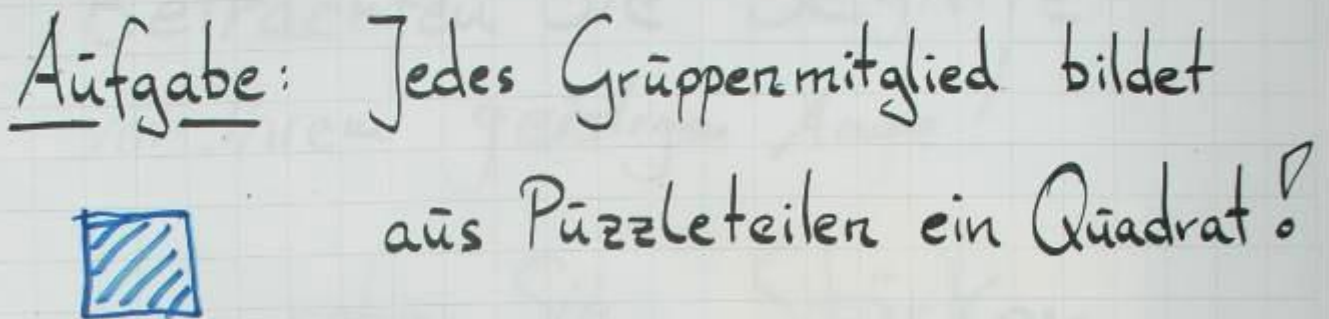 Aufgabe: Jedes Gruppenmitglied bildet
aus Puzzleteilen ein Quadrat!